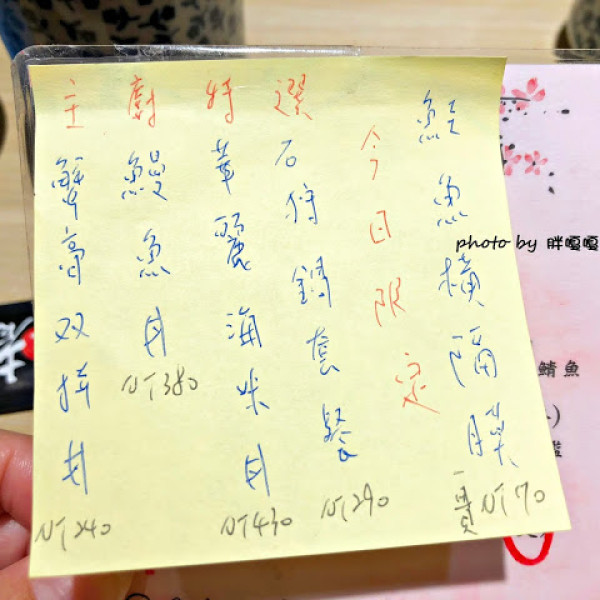 主廚特選
蟹膏双拼丼
NT240
鰻魚丼
NT380
華麗海味丼
NT430
石狩鍋套餐
NT290
今日限定
鮭魚橫隔膜
一貫 NT70
photo by 胖嘎嘎
鯖魚